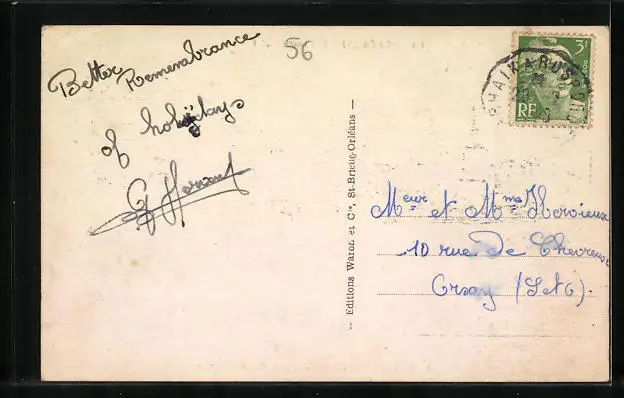 56
Better Remembrance
of holydays
3F
RF
— Editions Waron et Cie, St-Brieuc-Orléans —
Meur et Mme Hervieux
10 rue de Chevreuse
Orsay (SetO).